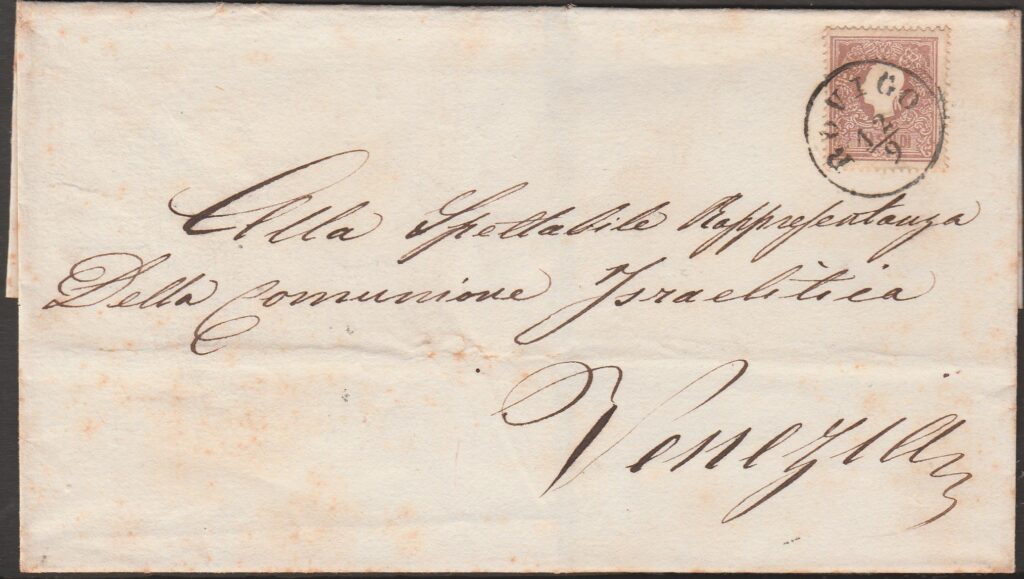 ROVIGO
12/9
Alla Spettabile Rappresentanza
Della Comunione Israelitica
Venezia